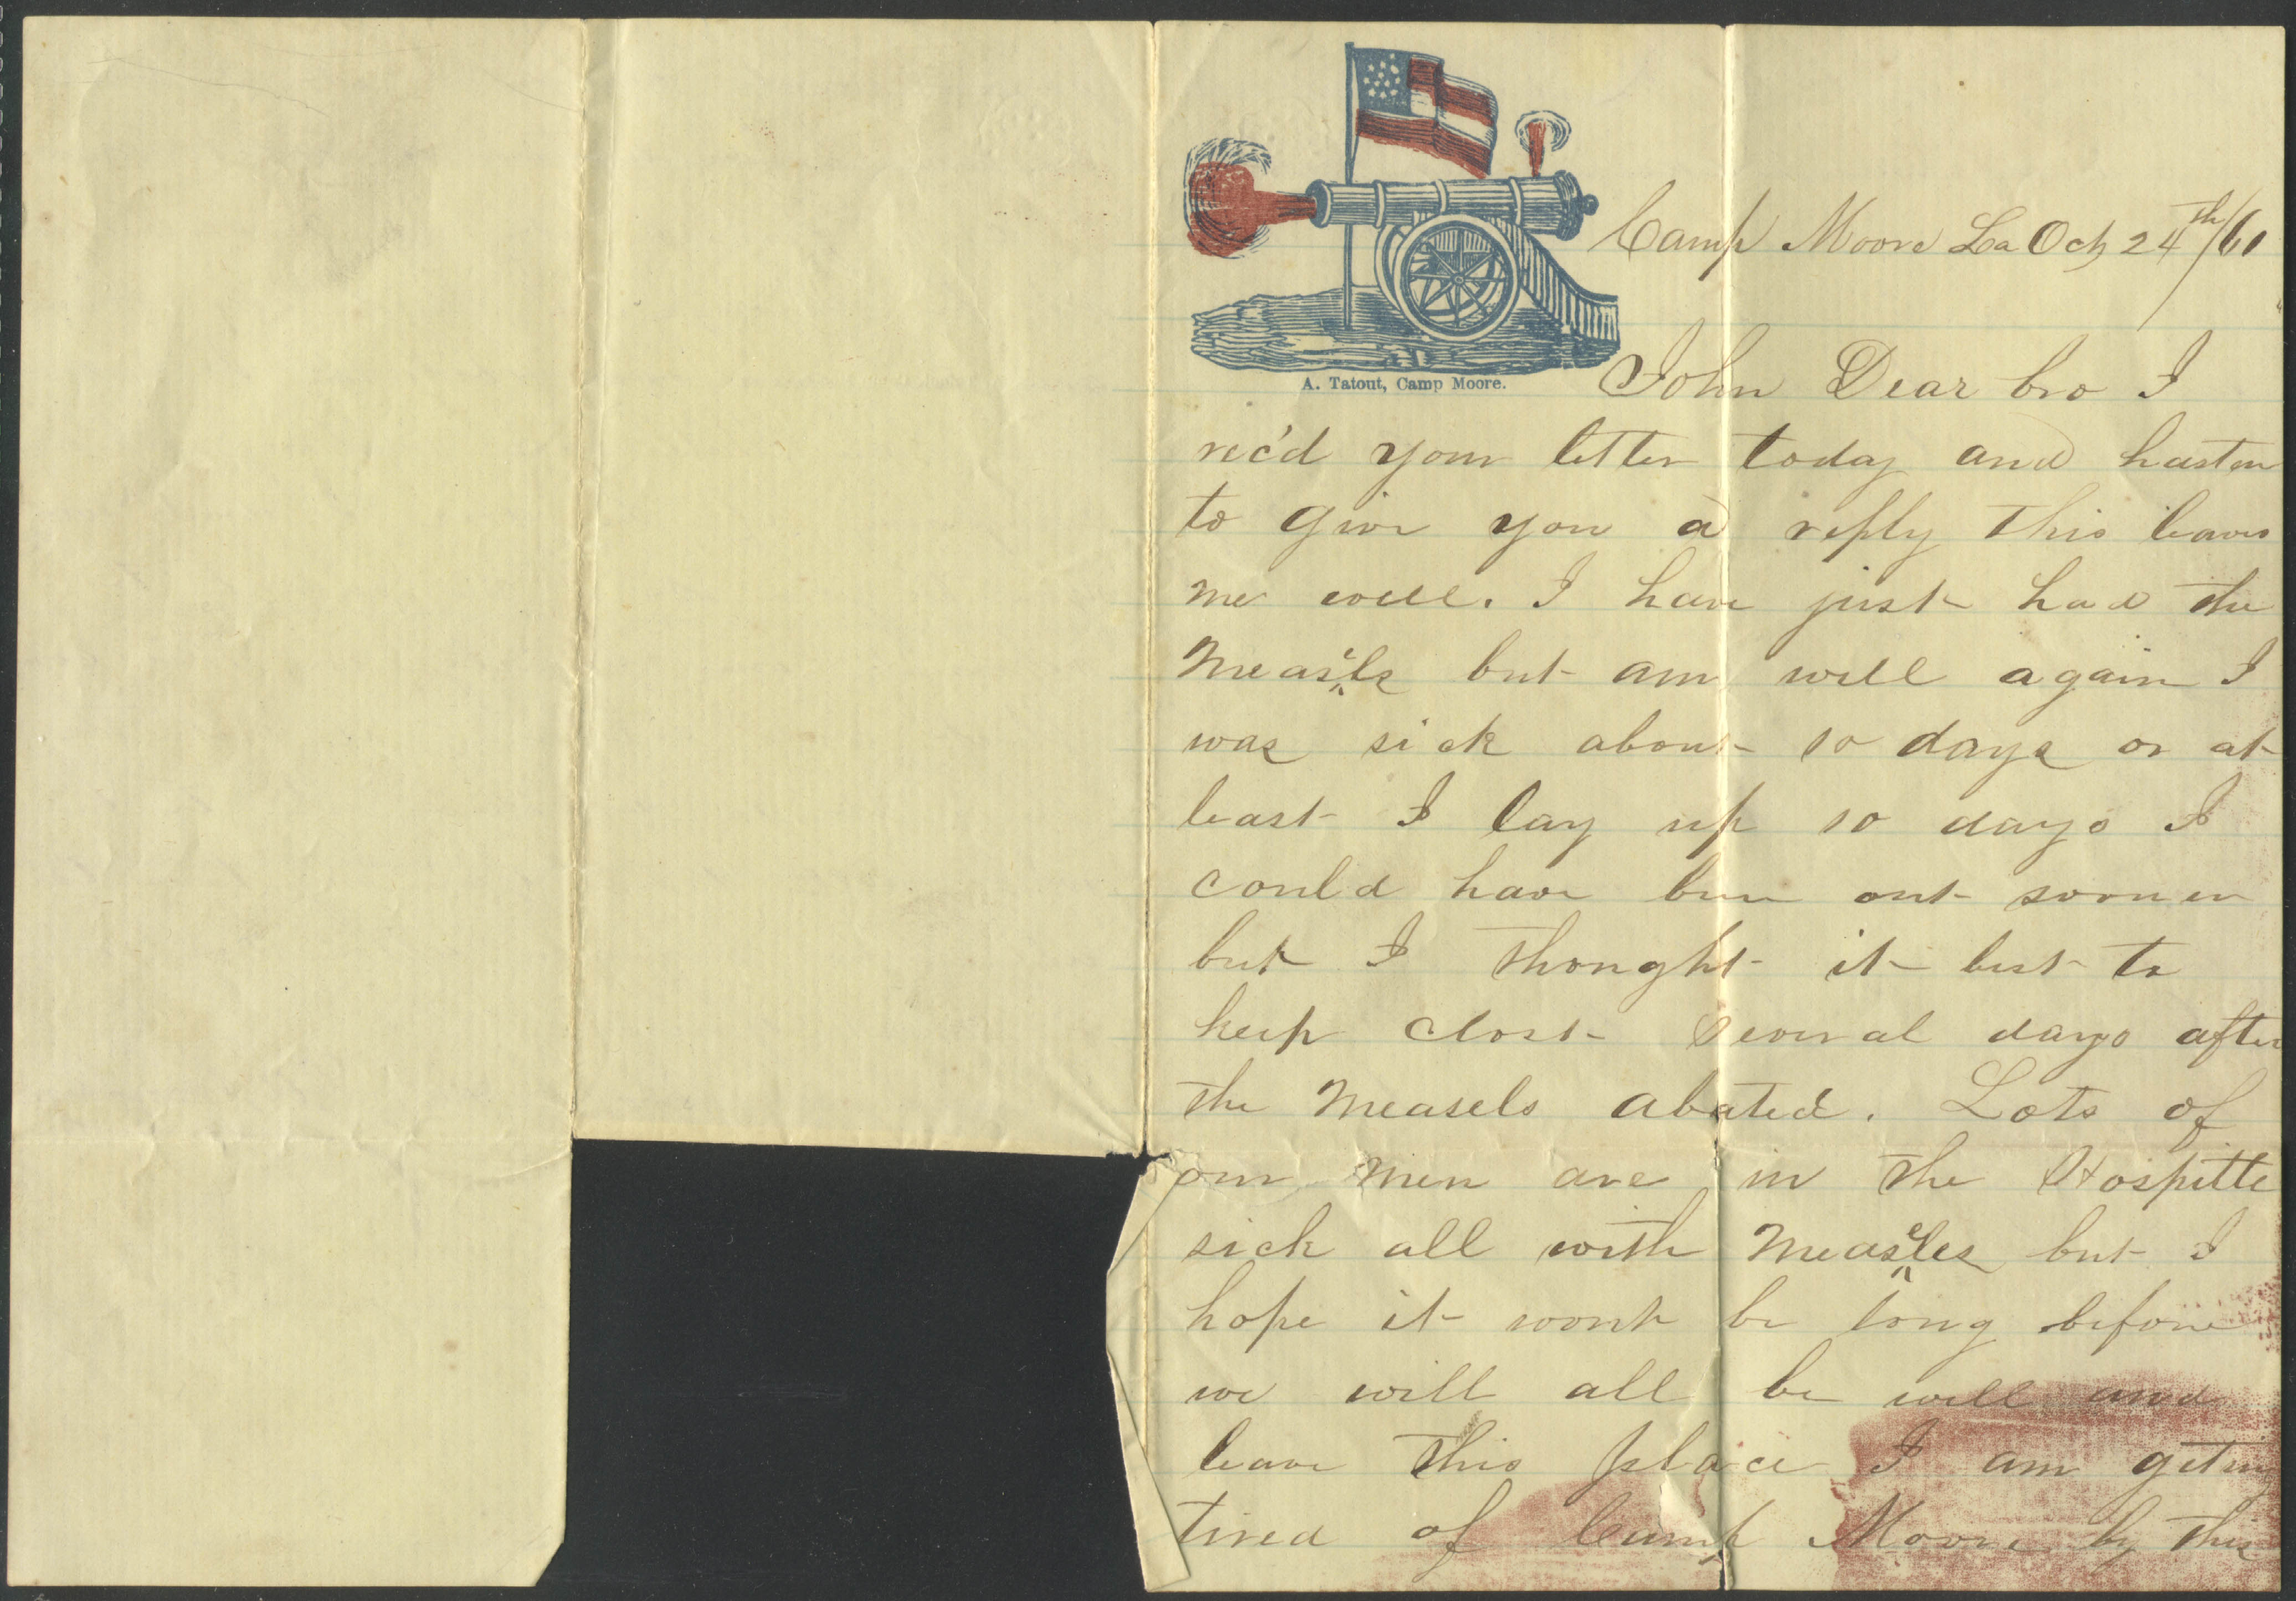 Camp Moore La Oct 24th/61
A. Tatout, Camp Moore.
John Dear bro I
rec'd your letter today and hasten
to give you a reply this leaves
me well. I have just had the
Measels but am well again I
was sick about 10 days or at
least I lay up 10 days I
could have been out sooner
but I thought it best to
keep close several days after
the Measels abated. Lots of
our men are in the Hospitle
sick all with Measeles but I
hope it wont be long before
we will all be well and
leave this place I am geting
tired of Camp Moore by this